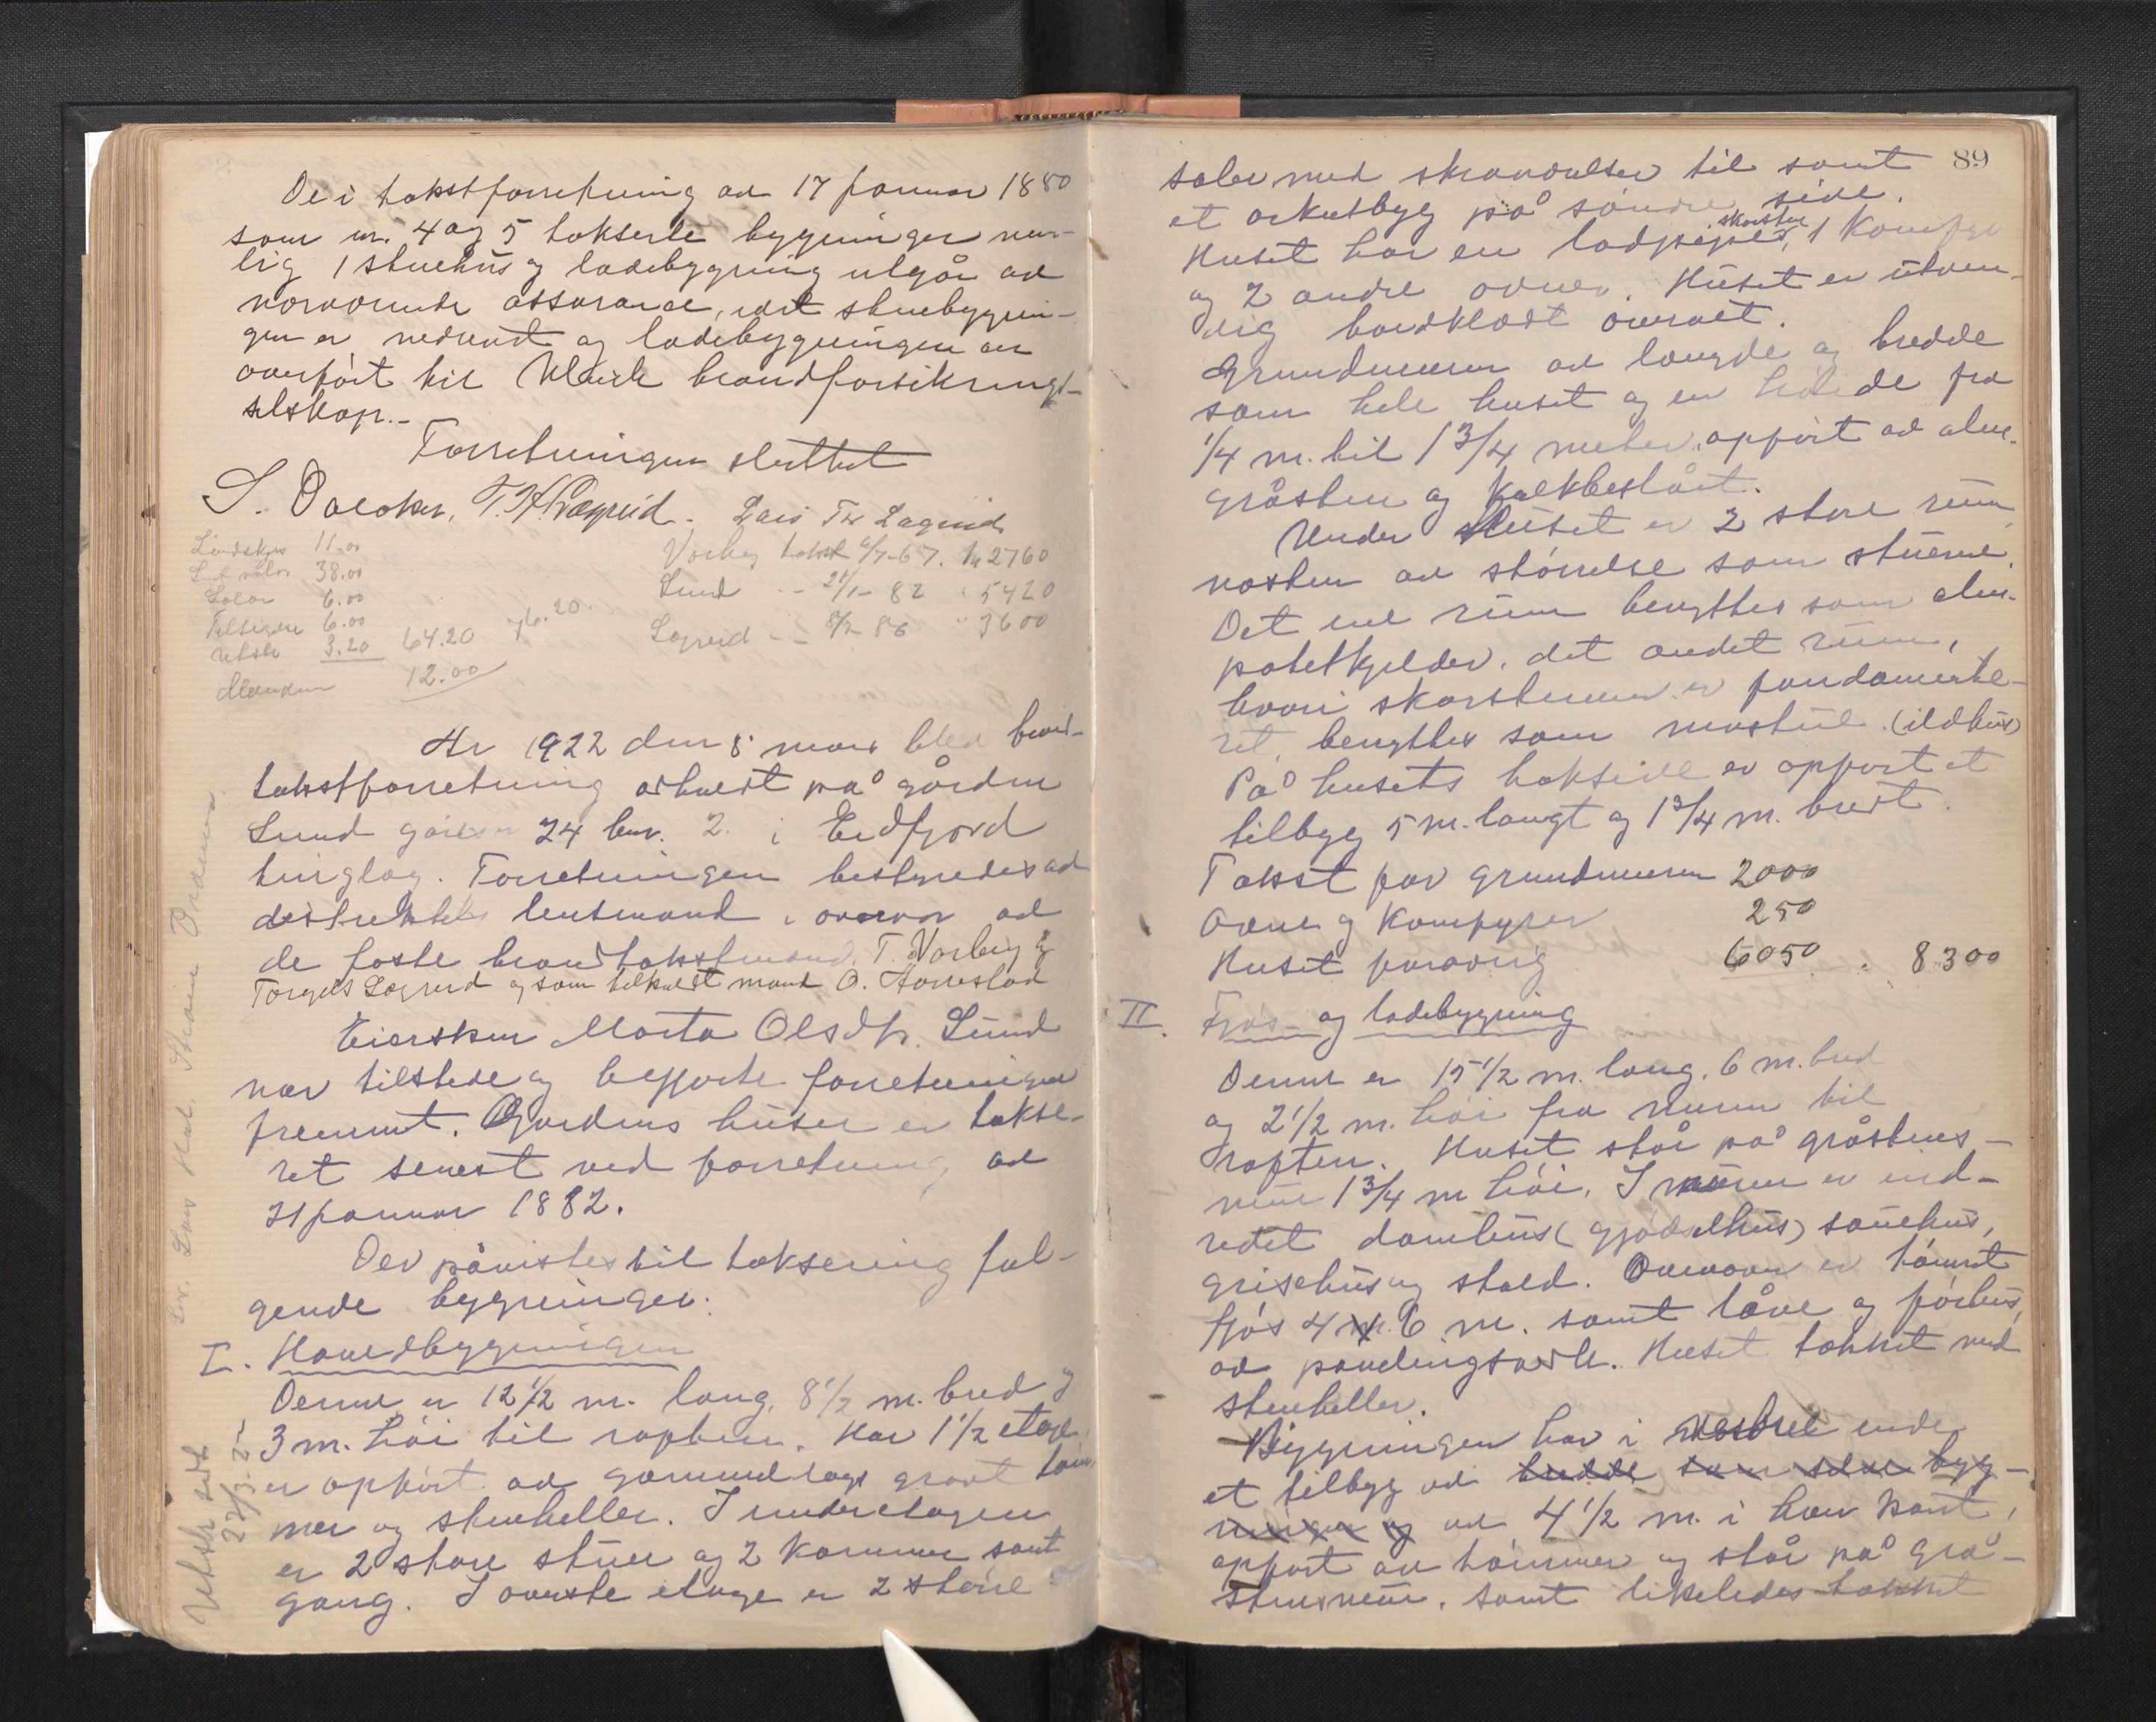 De i takstforretning av 17 januar 1880
som nr. 4 og 5 takserte bygninger nem-
lig 1 stuehus og ladebygning utgår av
nærværende assurance, idet stuebygnin-
gen er nedrevet og ladebygningen er
overført til Ulvik brandforsikrings-
selskap.-
Forretningen sluttet
S. T. H. Lægreid. Lars Lægreid
11.00
38.00
6.00
6.00
Utskr 3.20 64.20 76.20
12.00
Varberg takst 6/7-67. kr 2760
Lund -- 21/1-82 " 5420
Lægreid -- 86 " 3600
År 1922 den 8 mars blev brand-
takstforretning avholdt på gården
Lund gårdsnr 24 bnr. 2. i Eidfjord
tinglag. Forretningen bestyredes av
distriktets lensmand i overvær av
de faste brandtakstmænd, T. Varberg og
Torgils Lægreid og som tilkaldt mand O.
Eiersken Marta Olsdtr. Lund
var tilstede og begjærte forretningen
fremmet. Gardens huser er takse-
ret senest ved forretning av
21 januar 1882.
Der påvistes til taksering føl-
gende bygninger:
I. Hovedbygningen
Denne er 12 1/2 m. lang, 8 1/2 m. bred og
3 m. høi til raften. Har 1 1/2 etage,
er opført av gammeldags grovt tøm-
mer og stenheller. I underetagen
er 2 store stuer og 2 kammer samt
gang. I øverste etage er 2 større
Utskr sendt
22/3.22
89
saler med til samt
et arkutbyg på søndre side.
Huset har en ladpipe, skorsten 1 komfyr
og 2 andre ovner. Huset er utven-
dig bordklædt overalt.
Grundmuren av længde og bredde
som hele huset og en høide fra
1/4 m. til 1 3/4 meter, opført av alm.
gråsten og kalkbeslået.
Under Huset er 2 store rum
næsten av størrelse som stuerne.
Det ene rum benyttes som alm.
potetkjelder, det andet rum,
hvori skorstenen er fundamente-
ret, benyttes som (ildhus)
På husets bakside er opført et
tilbyg 5 m. langt og 1 3/4 m. bredt.
Takst for grundmuren 2000
Ovne og Komfyrer 250
Huset forøvrig 6050 . 8300
II. Fjøs- og ladebygning
Denne er 15 1/2 m. lang, 6 m. bred
og 2 1/2 m. høi fra muren til
raften. Huset står på gråstens-
mur 1 3/4 m høi. I muren er ind-
redet (gjødselhus) sauehus,
grisehus og stald. Ovenover er tømret
fjøs 4 x 6 m. samt låve og forhus,
av Huset tækket med
stenheller.
Bygningen har i vestre ende
et tilbyg av bredde som selve byg-
ningen og av 4 1/2 m. i hver kant,
opført av tømmer og står på grå-
stensmur, samt likeledes tækket